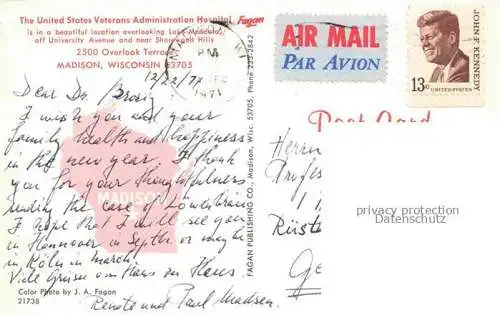 The United States Veterans Administration Hospital
is in a beautiful location overlooking Lake Mendota,
off University Avenue and near Shorewood Hills
2500 Overlook Terrace
MADISON, WISCONSIN 53705
Fagan
PM
1971
AIR MAIL
PAR AVION
JOHN F. KENNEDY
13c
UNITED STATES
12/22/71
Dear Dr.
I wish you and your
family health and happiness
in the new year. I thank
you for your thoughtfulness
sending the case of Löwenbräu
I hope that I will see you
in Hannover in Septbr or maybe
in Köln in March.
Viele Grüsse von Haus zu Haus.
Renate und Paul Madsen.
MADISON
Color Photo by J. A. Fagan
21738
FAGAN PUBLISHING CO., Madison, Wisc. 53705, Phone 233-2642
Post Card
Herrn
Profes
Rüste
Ge
privacy protection